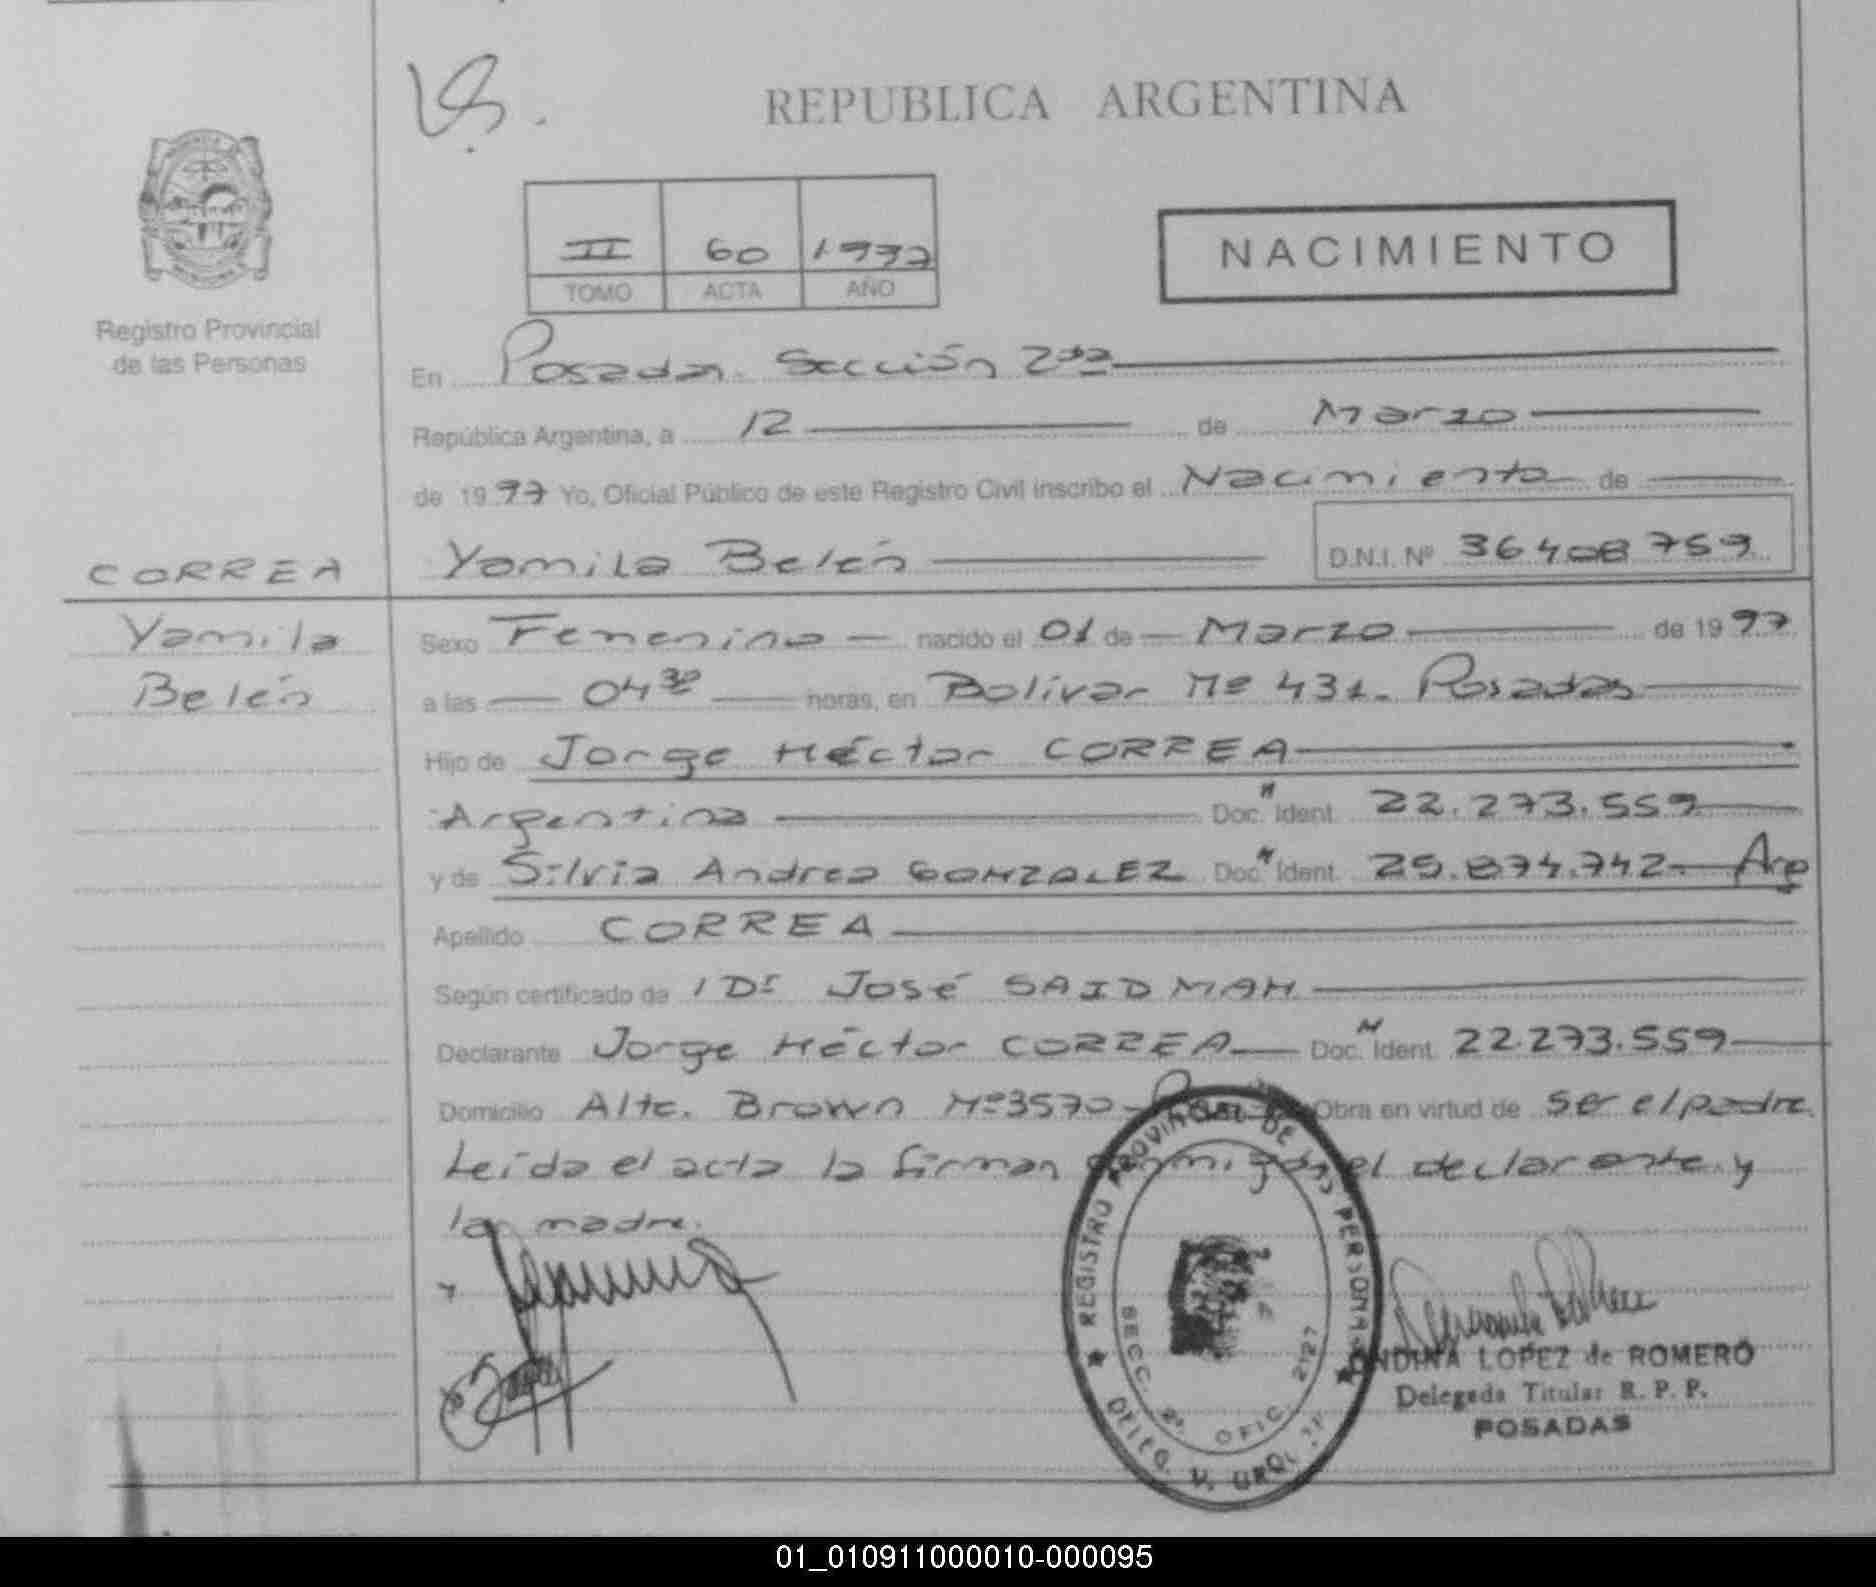 REPUBLICA ARGENTINA
II 60 1997
TOMO ACTA AÑO
NACIMIENTO
Registro Provincial
de las Personas
En Posadas Sección 2da
República Argentina, a 12 de Marzo
de 1997 Yo, Oficial Público de este Registro Civil inscribo el Nacimiento de
CORREA Yamila Belén D.N.I. Nº 36408759
Yamila
Belén
Sexo Femenino nacido el 01 de Marzo de 1997
a las 04 30 horas, en Bolívar Nº 431. Posadas
Hijo de Jorge Héctor CORREA
Argentina Doc. N Ident. 22.273.559
y de Silvia Andrea GONZALEZ Doc. N Ident. 25.874.742 Arg
Apellido CORREA
Según certificado de l Dr José SAIDMAN
Declarante Jorge Héctor CORREA Doc. N Ident. 22.273.559
Domicilio Alte. Brown Nº 3570 Obra en virtud de ser el padre.
Leída el acta la firman conmigo el declarante y
la madre.
REGISTRO PROVINCIAL DE LAS PERSONAS
SECC. 2ª. OFIC. 2127
LOPEZ de ROMERO
Delegada Titular R. P. P.
POSADAS
01_010911000010-000095